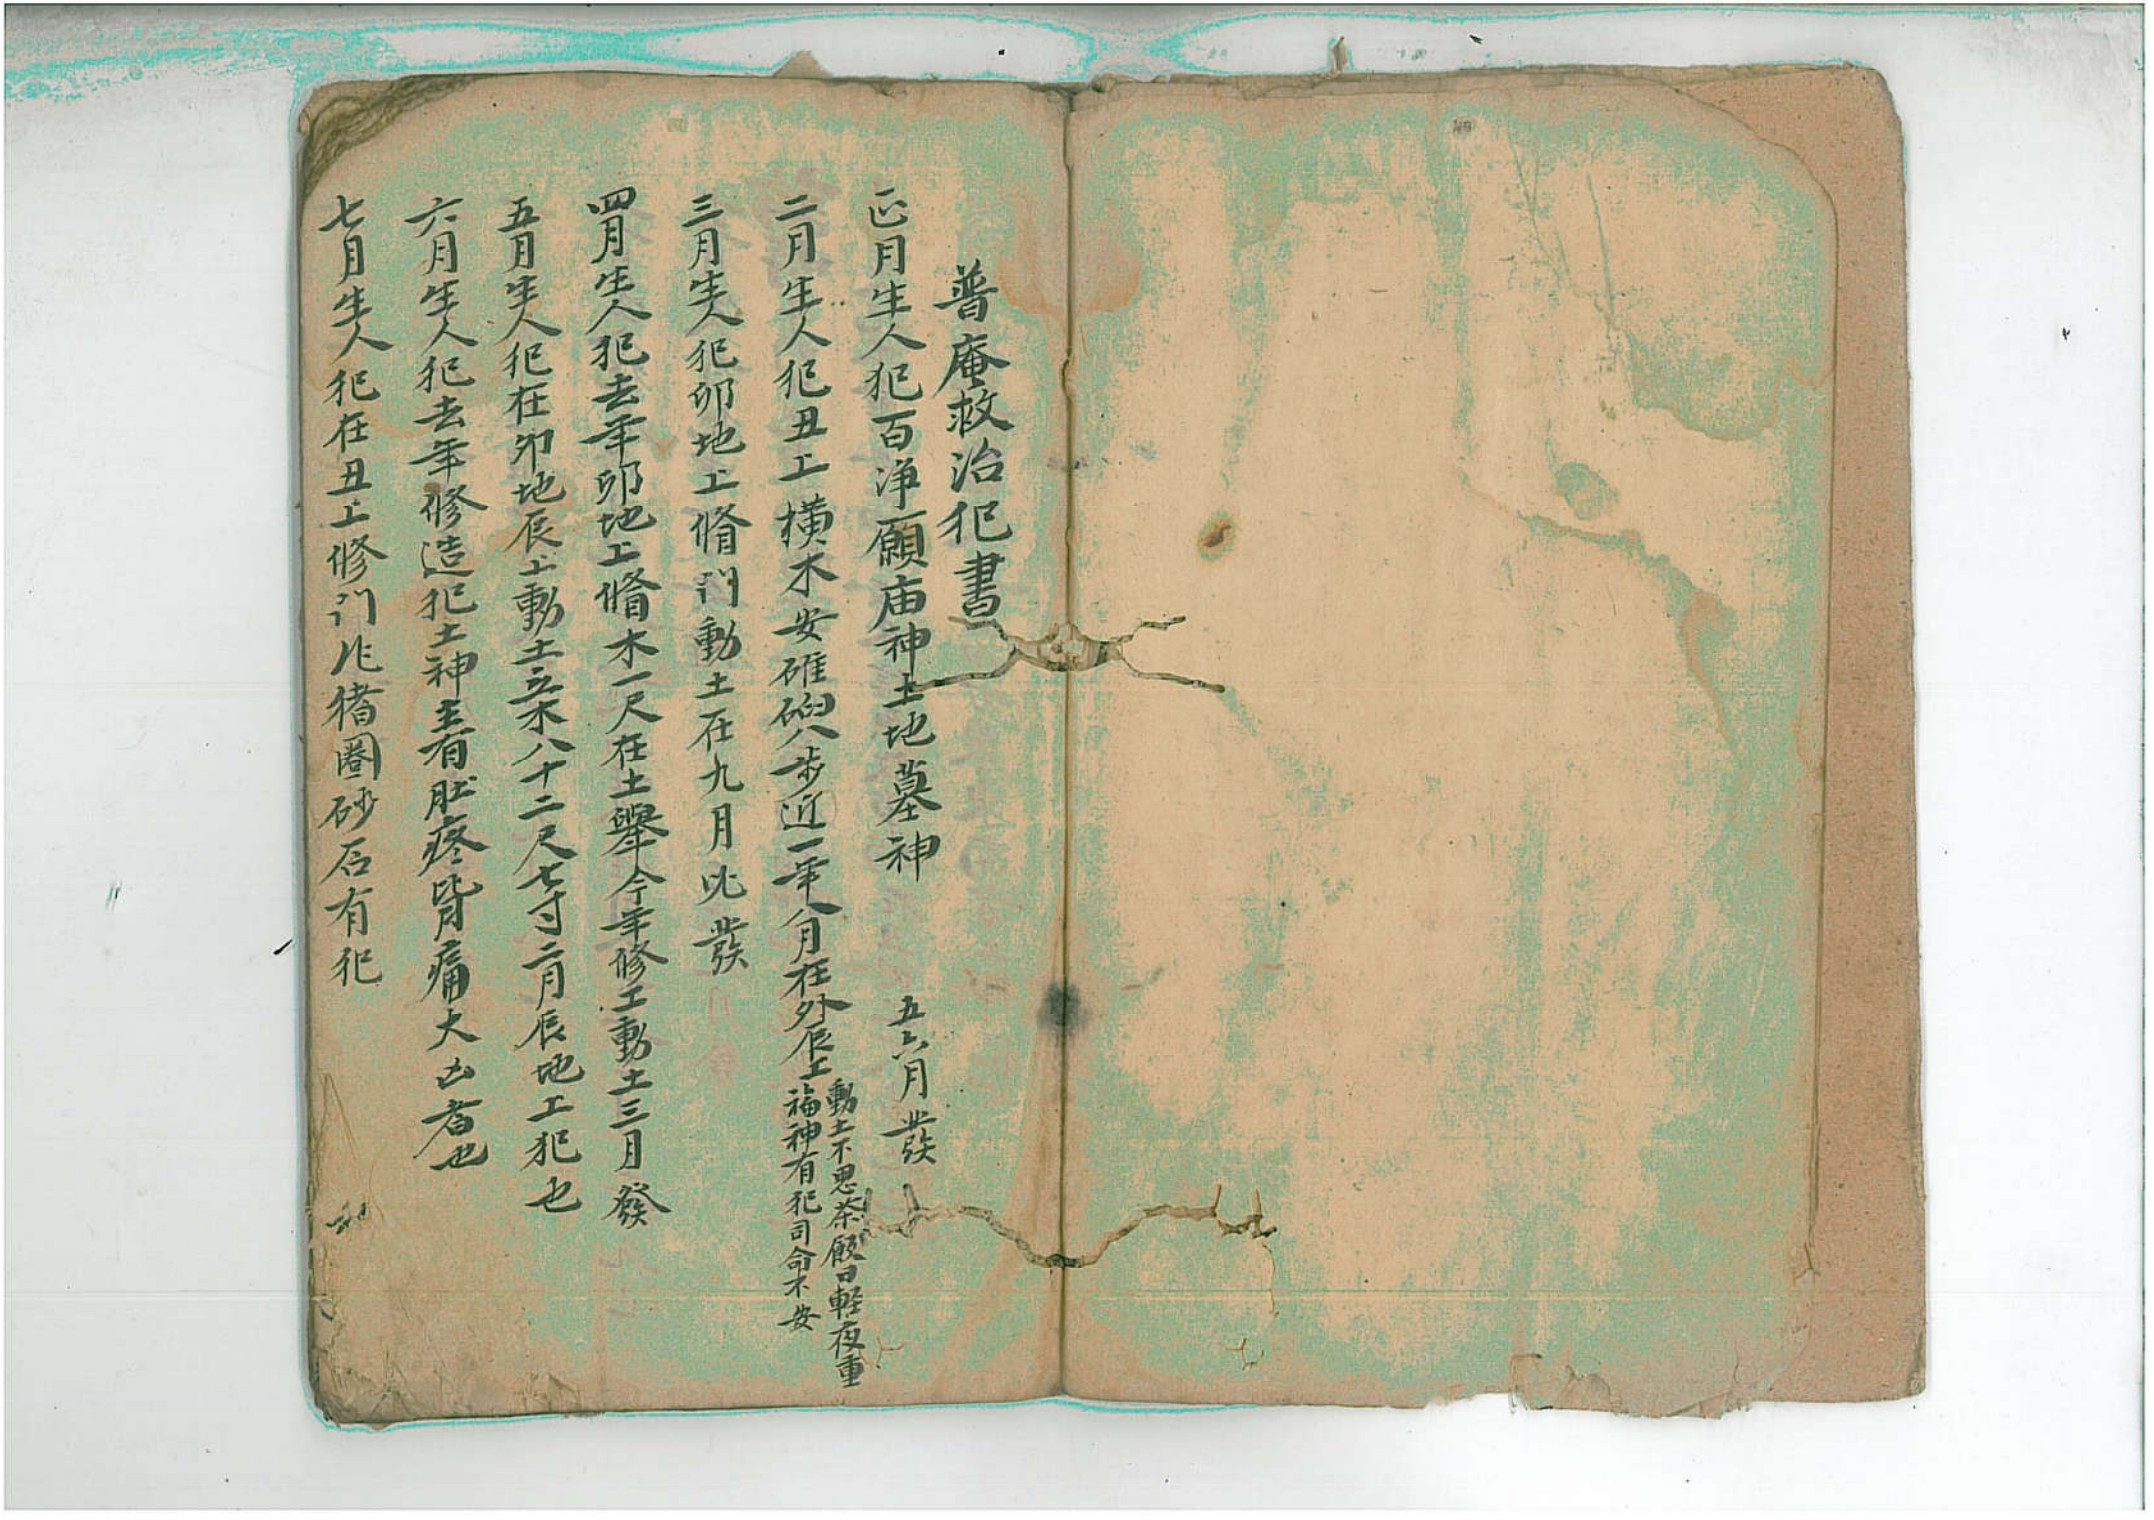 普庵救治犯書
正月生人犯百净願庙神土地墓神 五六月發
二月生人犯丑上横木安碓磡八步近一年八月在外辰上
動土不思茶飯日軽夜重
福神有犯司命不安
三月生人犯卯地上脩门動土在九月此發
四月生人犯去年卯地上脩木一尺在土舉今年修工動土三月發
五月生人犯在卯地辰上動土立木八十二尺七寸二月辰地工犯也
六月生人犯去年修造犯土神主有肚疼背痛大凶者也
七月生人犯在丑上修门作猪圈砂石有犯